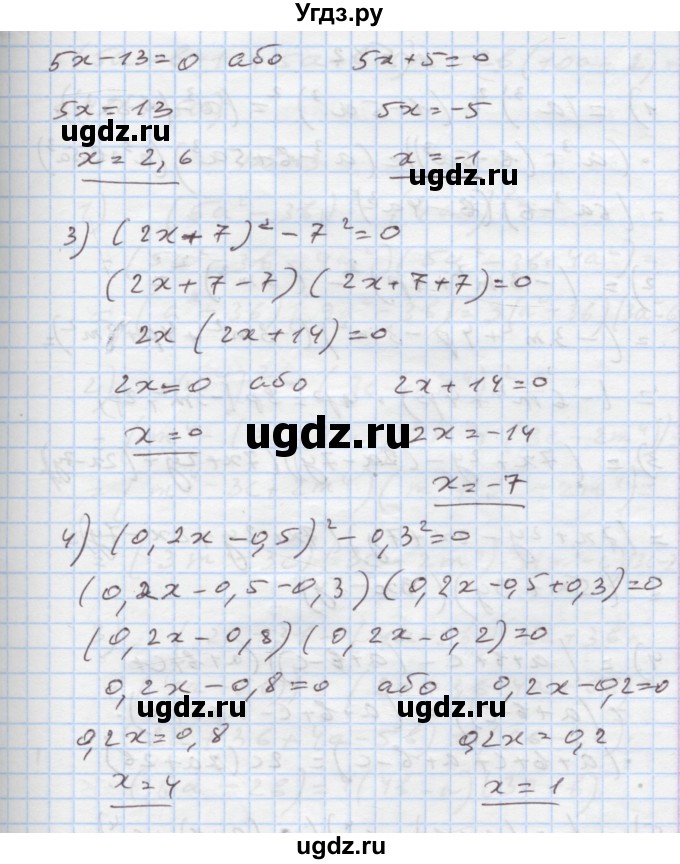 Угдз.ру
5x-13=0 або 5x+5=0
5x=13 5x=-5
ugdz.ru
x=2,6 x=-1
ugdz.ru
3) (2x+7)²-7²=0
(2x+7-7)(2x+7+7)=0
2x(2x+14)=0
2x=0 або 2x+14=0
x=0 2x=-14
ugdz.ru
x=-7
4) (0,2x-0,5)²-0,3²=0
(0,2x-0,5-0,3)(0,2x-0,5+0,3)=0
(0,2x-0,8)(0,2x-0,2)=0
0,2x-0,8=0 або 0,2x-0,2=0
ugdz.ru ugdz.ru
0,2x=0,8 0,2x=0,2
x=4 x=1
ugdz.ru